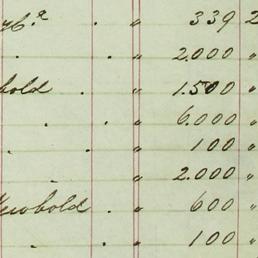 y Cº . " 339 2
. " 2.000 "
bold . " 1.500 "
. . " 6.000 "
. . " 100 "
. " 2.000 "
Newbold . " 600 "
. . " 100 "